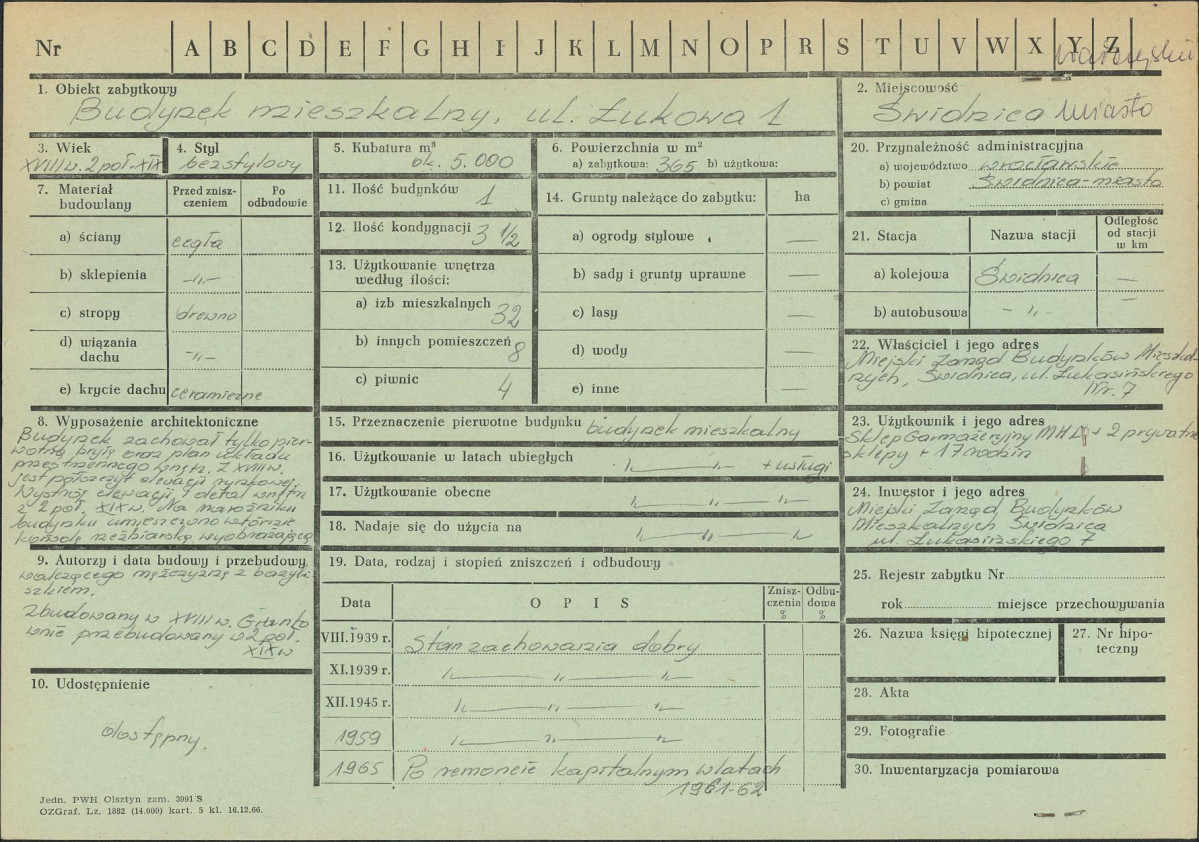 Nr A B C D E F G H I J K L M N O P R S T U V W X Y Z
1. Obiekt zabytkowy
Budynek mieszkalny, ul. Łukowa 1
2. Miejscowość
Świdnica Miasto
3. Wiek
XVIII w. 2 poł. XIX
4. Styl
bezstylowy
5. Kubatura m³
ok. 5.000
6. Powierzchnia w m²
a) zabytkowa: 365 b) użytkowa:
7. Materiał budowlany
Przed zniszczeniem
Po odbudowie
a) ściany cegła
b) sklepienia -„-
c) stropy drewno
d) wiązania dachu -„-
e) krycie dachu ceramiczne
8. Wyposażenie architektoniczne
Budynek zachował tylko pier-
wotną bryłę oraz plan układu
przestrzennego wnętrz. Z XVIII w.
jest półszczyt elewacji rynkowej.
Wystrój elewacji i detal wnętrz
z 2 poł. XIX w. Na narożniku
budynku umieszczono wtórnie
konsolę rzeźbiarską wyobrażającą
9. Autorzy i data budowy i przebudowy
walczącego mężczyznę z bazyli-
szkiem.
Zbudowany w XVIII w. Grunto
wnie przebudowany w 2 poł.
XIX w
10. Udostępnienie
dostępny.
11. Ilość budynków 1
12. Ilość kondygnacji 3 1/2
13. Użytkowanie wnętrza według ilości:
a) izb mieszkalnych 32
b) innych pomieszczeń 8
c) piwnic 4
14. Grunty należące do zabytku: ha
a) ogrody stylowe —
b) sady i grunty uprawne —
c) lasy —
d) wody —
e) inne —
15. Przeznaczenie pierwotne budynku budynek mieszkalny
16. Użytkowanie w latach ubiegłych -„- + usługi
17. Użytkowanie obecne -„- -„-
18. Nadaje się do użycia na -„- -„- -„-
19. Data, rodzaj i stopień zniszczeń i odbudowy
Data OPIS Zniszczenia % Odbudowa %
VIII.1939 r. Stan zachowania dobry
XI.1939 r. -„- -„- -„-
XII.1945 r. -„- -„- -„-
1959 -„- -„- -„-
1965 Po remoncie kapitalnym w latach
1961-62
20. Przynależność administracyjna
a) województwo wrocławskie
b) powiat Świdnica-miasto
c) gmina
21. Stacja Nazwa stacji Odległość od stacji w km
a) kolejowa Świdnica —
b) autobusowa -„- —
22. Właściciel i jego adres
Miejski Zarząd Budynków Mieszkal-
nych, Świdnica, ul. Łukasińskiego
Nr. 7
23. Użytkownik i jego adres
Sklep Garmażeryjny MHD + 2 prywatne
sklepy + 17 rodzin
24. Inwestor i jego adres
Miejski Zarząd Budynków
Mieszkalnych Świdnica
ul. Łukasińskiego 7
25. Rejestr zabytku Nr
rok miejsce przechowywania
26. Nazwa księgi hipotecznej
27. Nr hipoteczny
28. Akta
29. Fotografie
30. Inwentaryzacja pomiarowa
Jedn. PWH Olsztyn zam. 3091 S
OZGraf. Lz. 1882 (14.000) kart. 5 kl. 16.12.66.